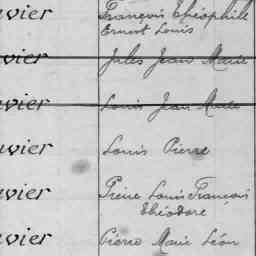 vier François Théophile
Ernest Louis
vier Jules Jean Marie
vier Louis Jean Marie
vier Louis Pierre
vier Pierre Louis François
Théodore
vier Pierre Marie Léon